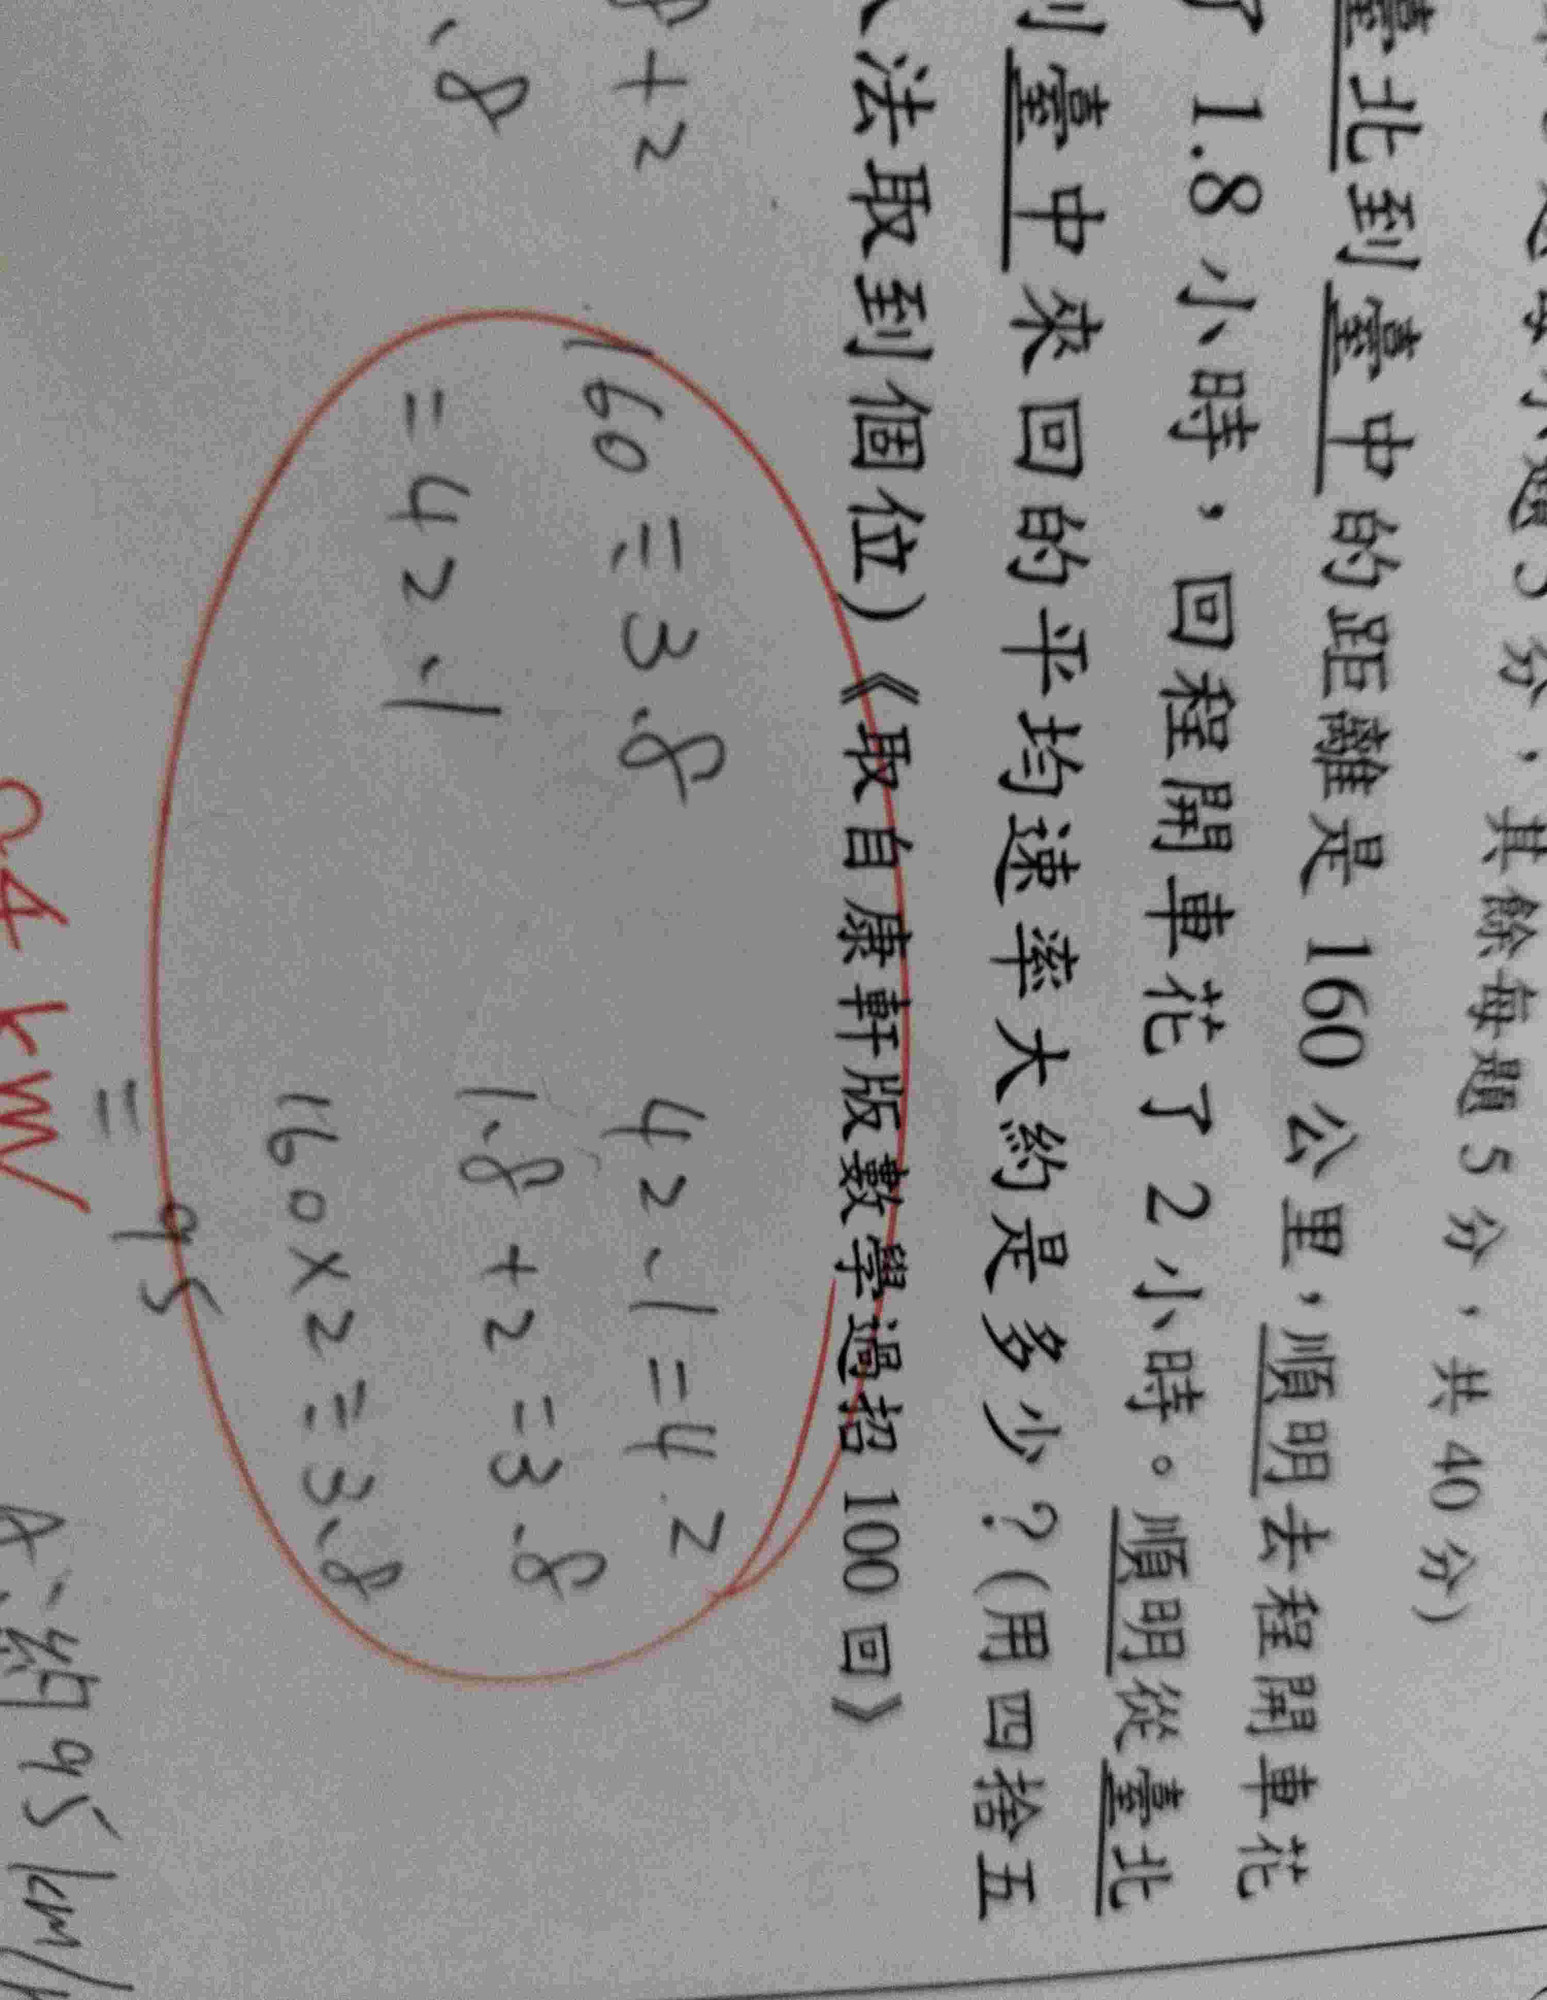 分，其餘每題 5 分，共 40 分）
臺北到臺中的距離是 160 公里，順明去程開車花
了 1.8 小時，回程開車花了 2 小時。順明從臺北
到臺中來回的平均速率大約是多少？（用四捨五
入法取到個位）《取自康軒版數學過招 100 回》
8+2
160÷3.8
42.1=4.2
.8
=42.1
1.8+2=3.8
160×2÷3.8
=95
84 km
A：約95km/